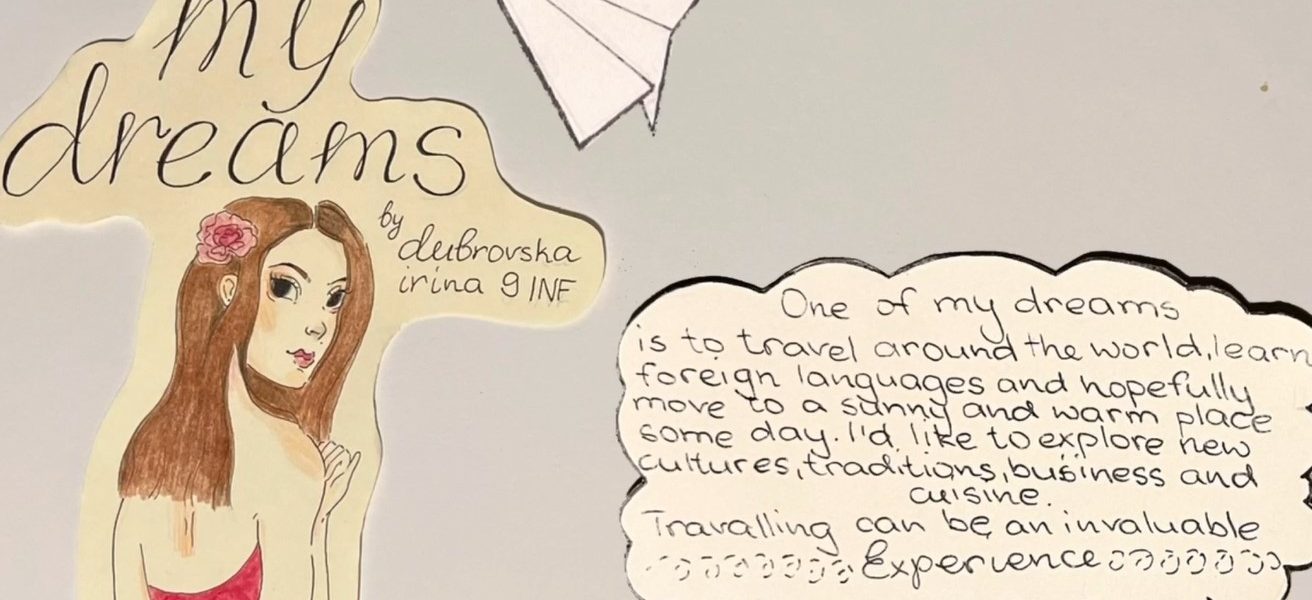 my
dreams
by
dubrovska
irina 9 INF
One of my dreams
is to travel around the world, learn
foreign languages and hopefully
move to a sunny and warm place
some day. I'd like to explore new
cultures, traditions, business and
cuisine.
Travalling can be an invaluable
Experience